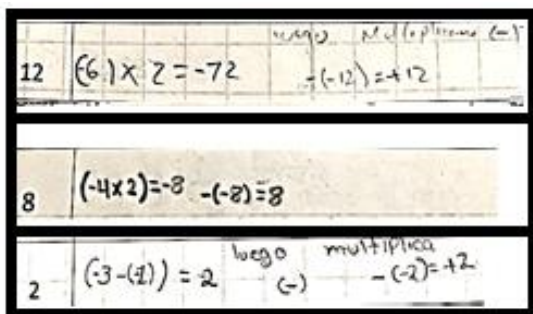 luego Multiplicamos (-)
12 (-6) x 2 = -12 -(-12) = +12
8 (-4x2)=-8 -(-8)=8
luego multiplica
2 (-3-(-1)) = -2 (-) -(-2)=+2